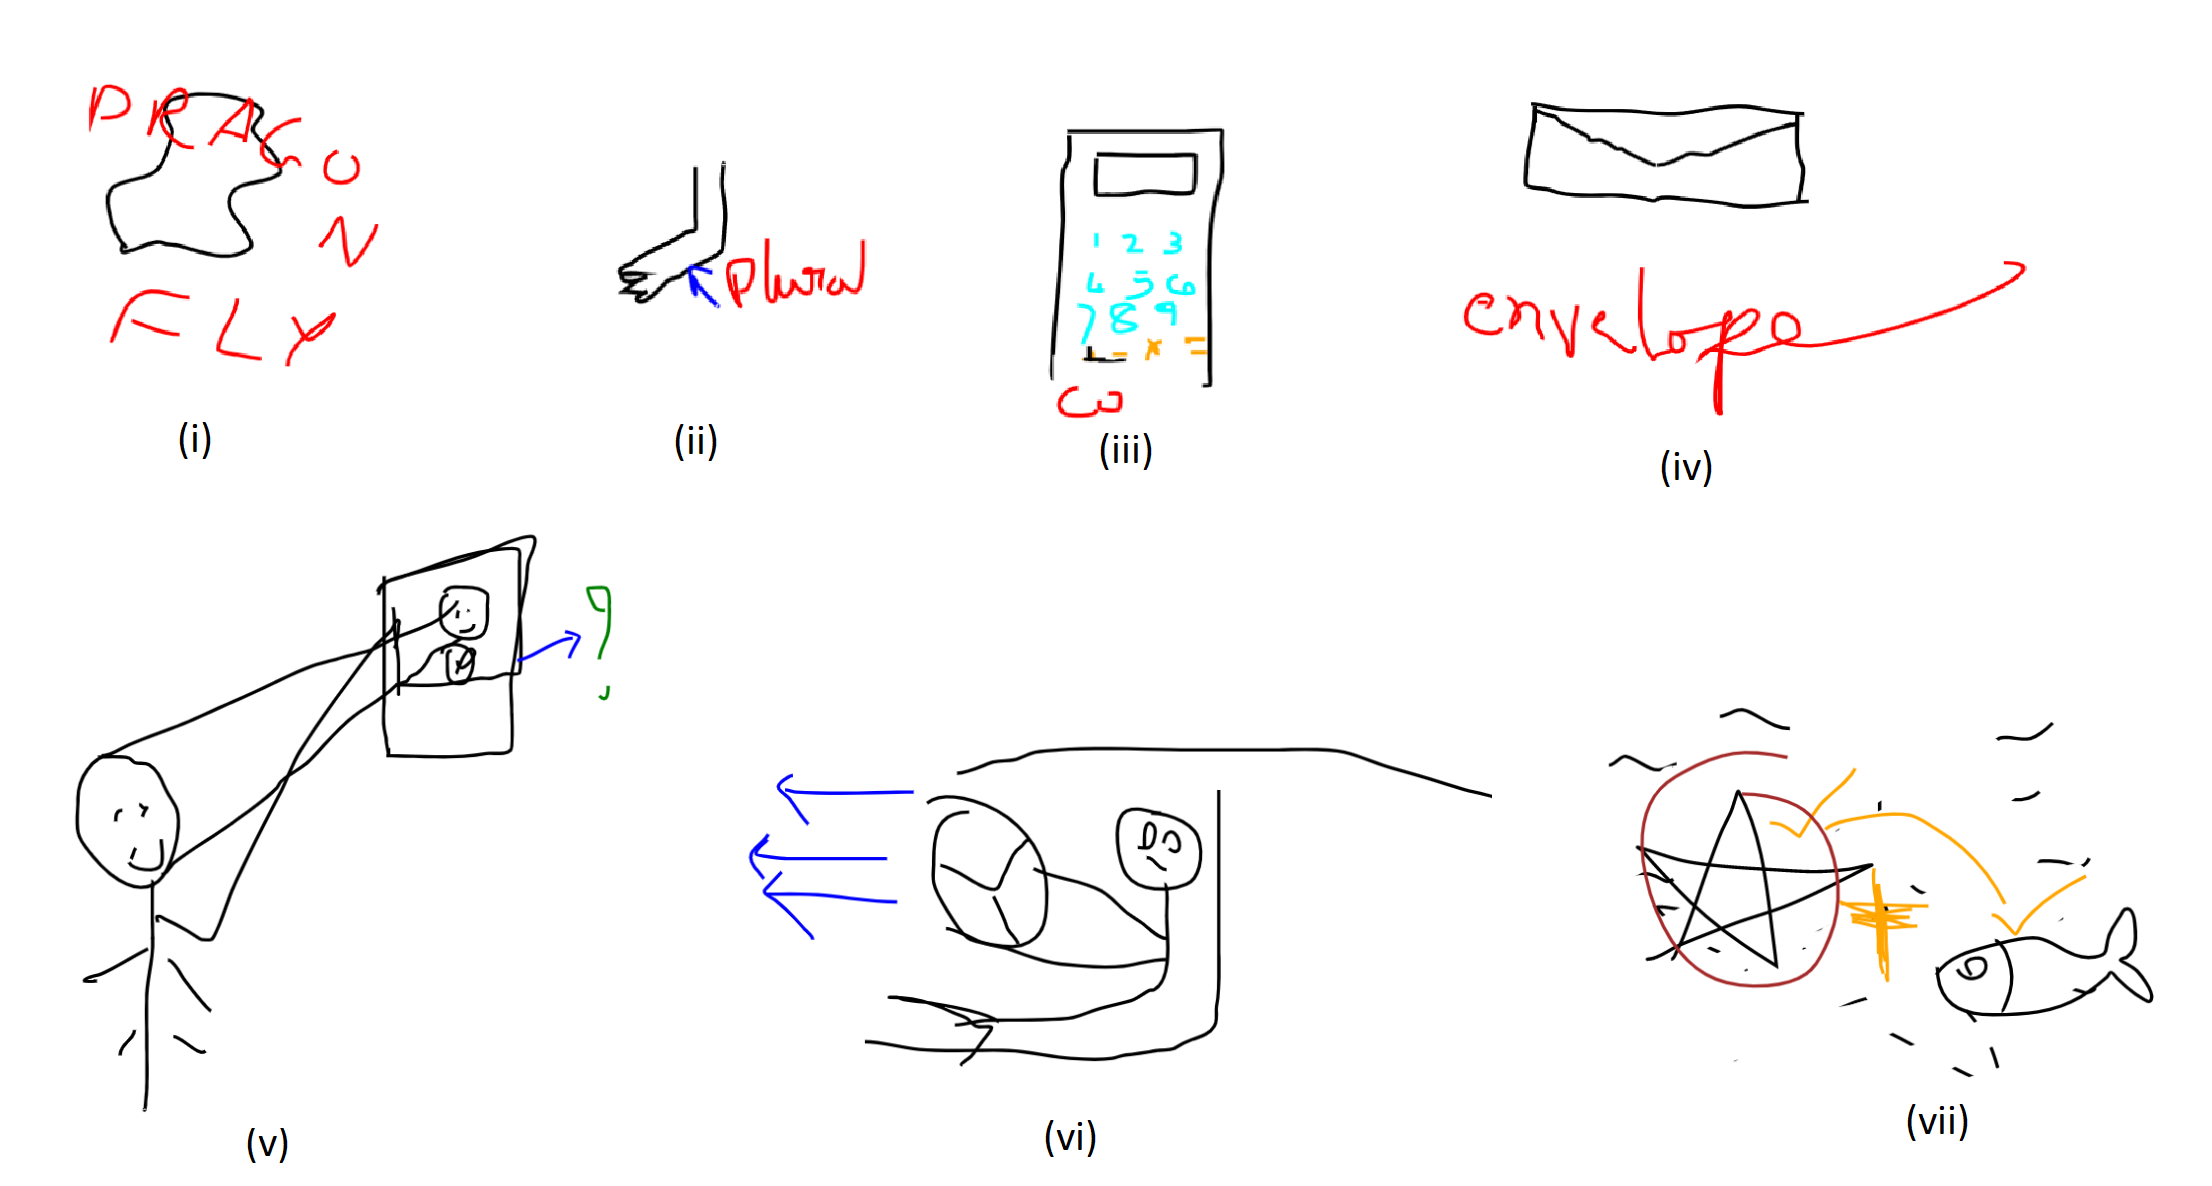 DRAGON
FLY
(i)
Plural
(ii)
1 2 3
4 5 6
7 8 9
- x =
(iii)
envelope
(iv)
?
(v)
(vi)
(vii)